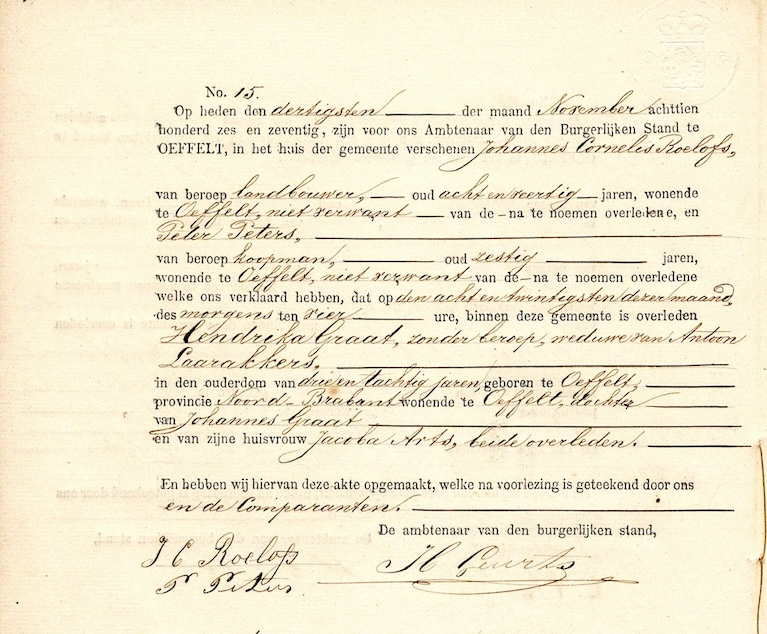 No. 15.
Op heden den dertigsten der maand November achttien
honderd zes en zeventig, zijn voor ons Ambtenaar van den Burgerlijken Stand te
OEFFELT, in het huis der gemeente verschenen Johannes Cornelis Roelofs,
van beroep landbouwer, oud acht en veertig jaren, wonende
te Oeffelt, niet verwant van de—na te noemen overledene, en
Peter Peters,
van beroep koopman, oud zestig jaren,
wonende te Oeffelt, niet verwant van de—na te noemen overledene
welke ons verklaard hebben, dat op den acht en twintigsten dezer maand,
des morgens ten vier ure, binnen deze gemeente is overleden
Hendrika Graat, zonder beroep, weduwe van Antoon
Laarakkers,
in den ouderdom van drie en tachtig jaren, geboren te Oeffelt,
provincie Noord-Brabant wonende te Oeffelt, dochter
van Johannes Graat
en van zijne huisvrouw Jacoba Arts, beide overleden.
En hebben wij hiervan deze akte opgemaakt, welke na voorlezing is geteekend door ons
en de Comparanten.
De ambtenaar van den burgerlijken stand,
J C Roelofs
H Geurts
P Peters